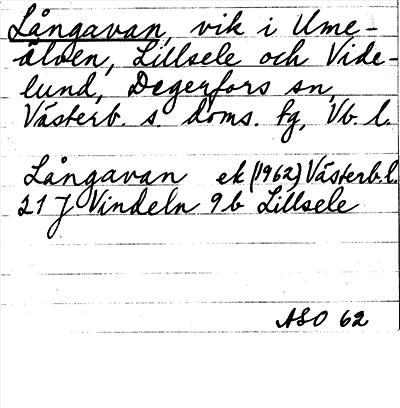 Långavan, vik i Ume-
älven, Lillsele och Vide-
lund, Degerfors sn,
Västerb. s. doms. tg, Vb. l.
Långavan ek (1962) Västerb.l.
21 J Vindeln 9b Lillsele
ASO 62